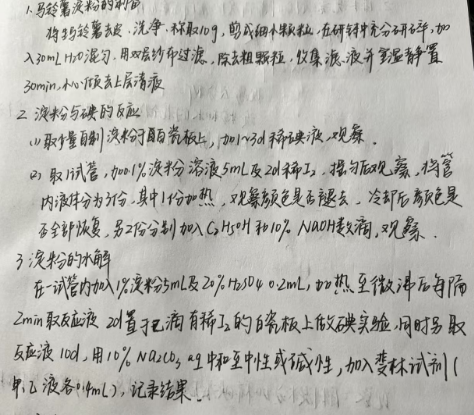 1.马铃薯淀粉的制备
将马铃薯去皮、洗净,称取10g,切成细小颗粒,在研钵中充分研碎,加
入30mL H₂O混匀,用双层纱布过滤,除去粗颗粒,收集滤液并室温静置
30min,小心倾去上层清液
2 淀粉与碘的反应
(1)取少量自制淀粉于白瓷板上,加1~3d稀碘液,观察.
(2)取1试管,加0.1%淀粉溶液5mL及2d稀I₂,摇匀后观察,将管
内液体分为3份,其中1份加热,观察颜色是否退去,冷却后颜色是
否全部恢复,另2份分别加入C₂H₅OH和10% NaOH数滴,观察.
3.淀粉的水解
在一试管内加入1%淀粉5mL及20%H₂SO₄ 0.2mL,加热至微沸后每隔
2min取反应液2d置于已滴有稀I₂的白瓷板上做碘实验,同时另取
反应液10d,用10% Na₂CO₃ aq中和至中性或碱性,加入斐林试剂(
甲、乙液各0.4mL),记录结果.